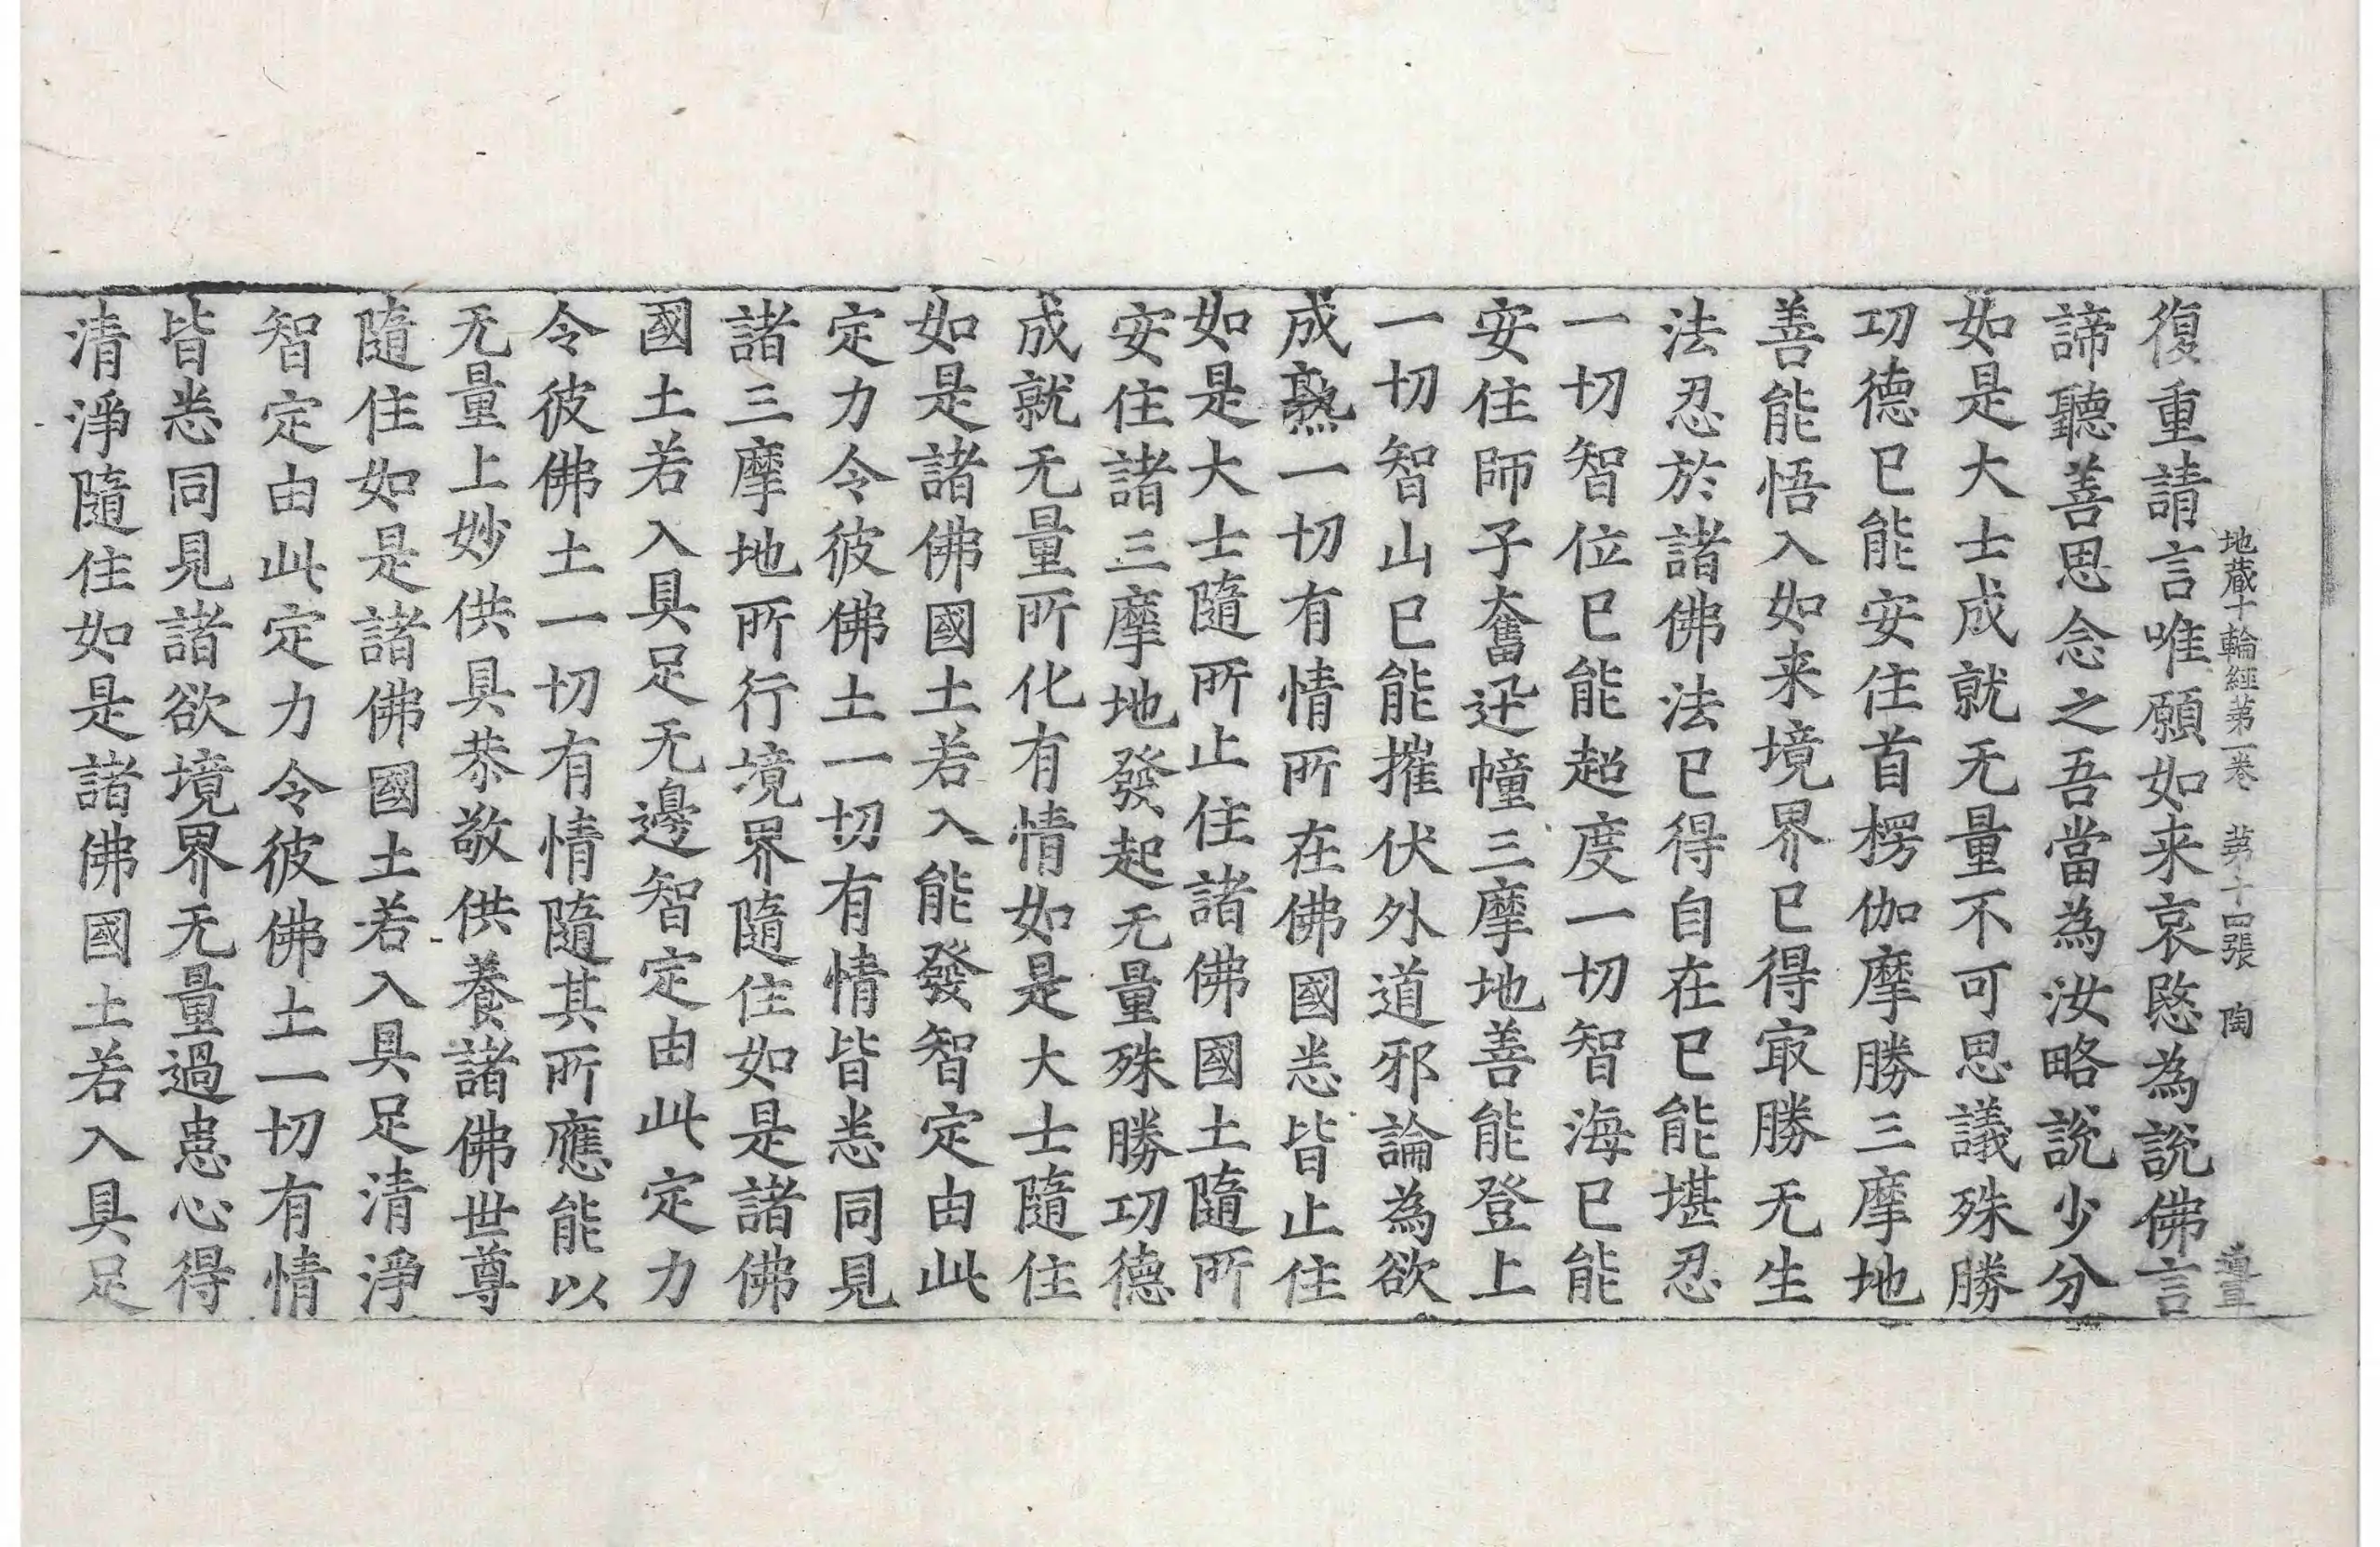 地蔵十輪經苐一卷　苐十四張　陶
復重請言唯願如来哀愍為説佛言
諦聽善思念之吾當為汝略説少分
如是大士成就无量不可思議殊勝
功德已能安住首楞伽摩勝三摩地
善能悟入如来境界已得㝡勝无生
法忍於諸佛法已得自在已能堪忍
一切智位已能超度一切智海已能
安住師子奮迅幢三摩地善能登上
一切智山已能摧伏外道邪論為欲
成熟一切有情所在佛國悉皆止住
如是大士隨所止住諸佛國土隨所
安住諸三摩地發起无量殊勝功德
成就无量所化有情如是大士隨住
如是諸佛國土若入能發智定由此
定力令彼佛土一切有情皆悉同見
諸三摩地所行境界隨住如是諸佛
國土若入具足无邊智定由此定力
令彼佛土一切有情隨其所應能以
无量上妙供具恭敬供養諸佛世尊
隨住如是諸佛國土若入具足清淨
智定由此定力令彼佛土一切有情
皆悉同見諸欲境界无量過患心得
清淨隨住如是諸佛國土若入具足